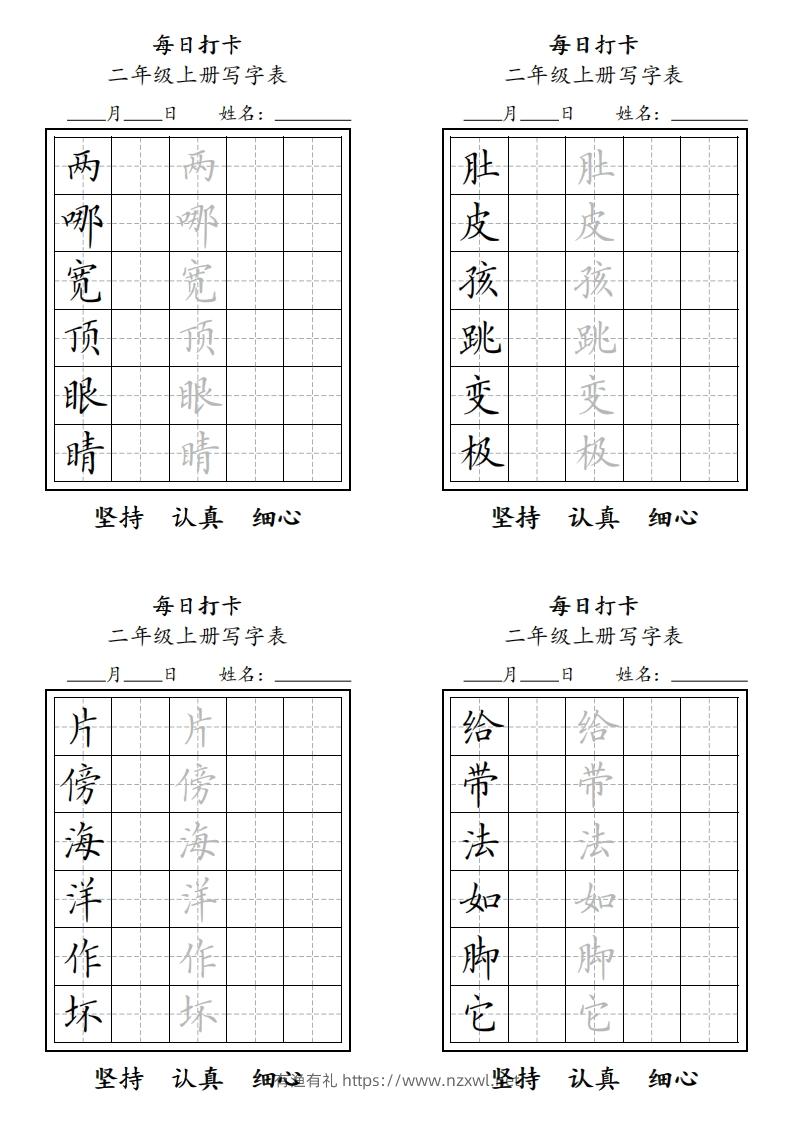 每日打卡
二年级上册写字表
____月____日 姓名：________
两 两
哪 哪
宽 宽
顶 顶
眼 眼
睛 睛
坚持 认真 细心
每日打卡
二年级上册写字表
____月____日 姓名：________
肚 肚
皮 皮
孩 孩
跳 跳
变 变
极 极
坚持 认真 细心
每日打卡
二年级上册写字表
____月____日 姓名：________
片 片
傍 傍
海 海
洋 洋
作 作
坏 坏
坚持 认真 细心
每日打卡
二年级上册写字表
____月____日 姓名：________
给 给
带 带
法 法
如 如
脚 脚
它 它
坚持 认真 细心
有渔有礼 https://www.nzxwl.net